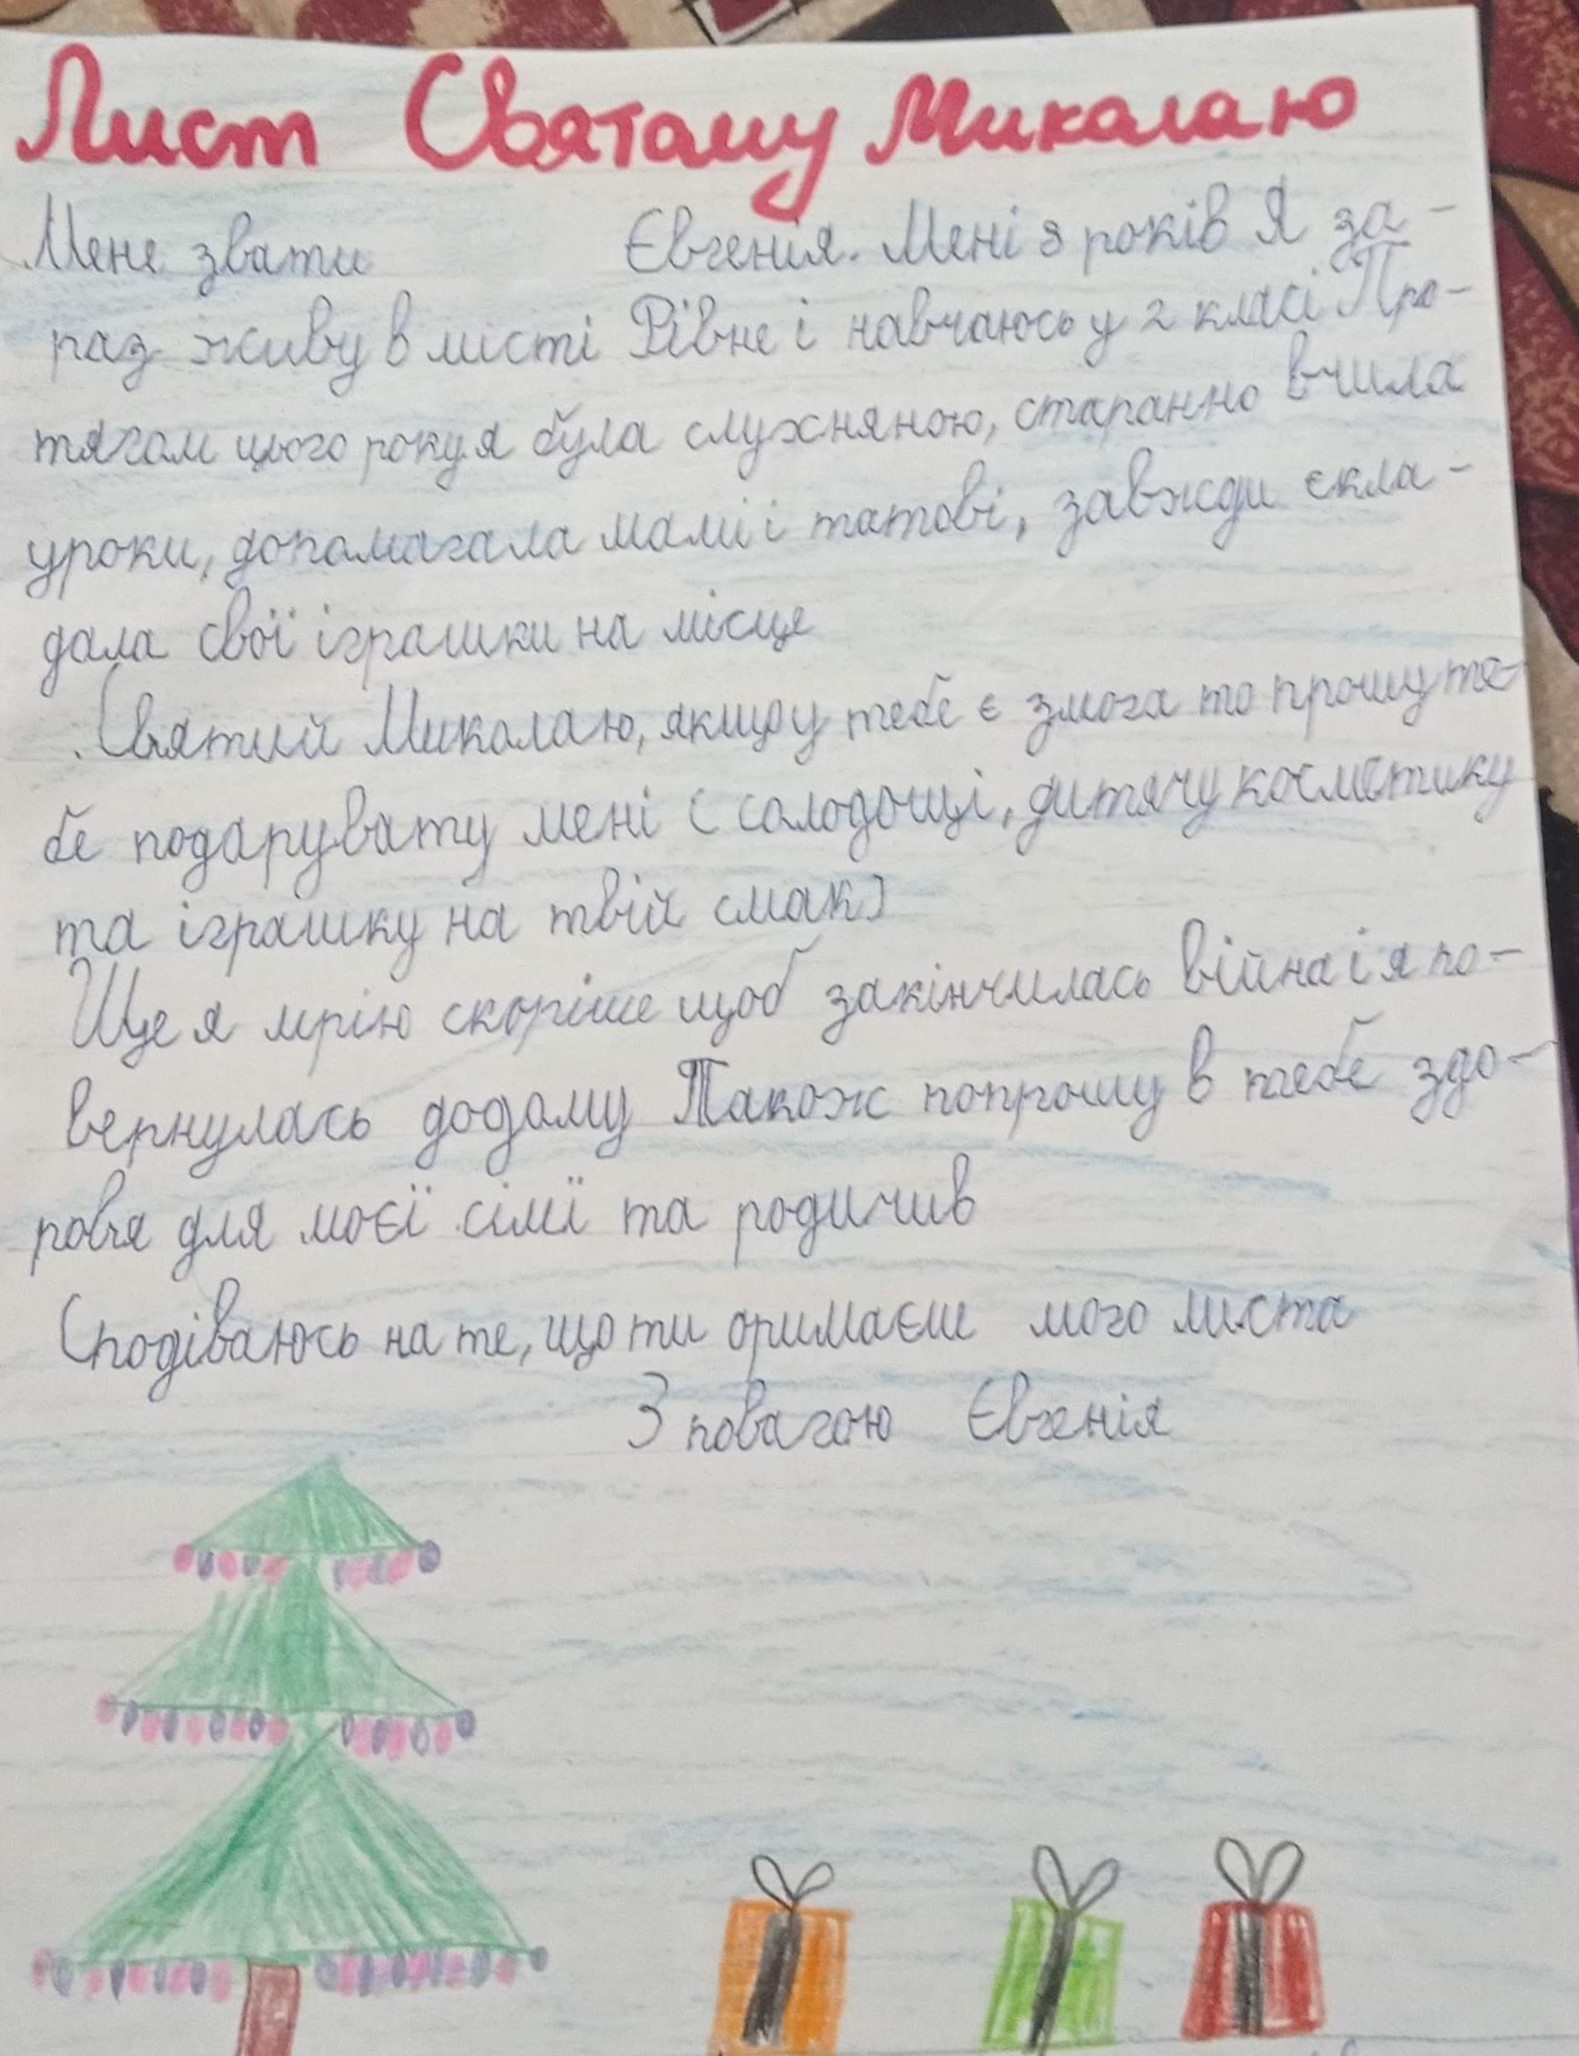 Лист Святому Миколаю
Мене звати Євгенія. Мені 8 років Я за-
раз живу в місті Рівне і навчаюсь у 2 класі Про-
тягом цього року я була слухняною, старанно вчила
уроки, допомагала мамі і татові, завжди скла-
дала свої іграшки на місце
. Святий Миколаю, якщо у тебе є змога то прошу те-
бе подарувату мені ( солодощі, дитячу косметику
та іграшку на твій смак)
Ще я мрію скоріше щоб закінчилась війна і я по-
вернулась додому Також попрошу в тебе здо-
ровя для моєї сімї та родичив
Сподіваюсь на те, що ти оримаєш мого листа
З повагою Євгенія